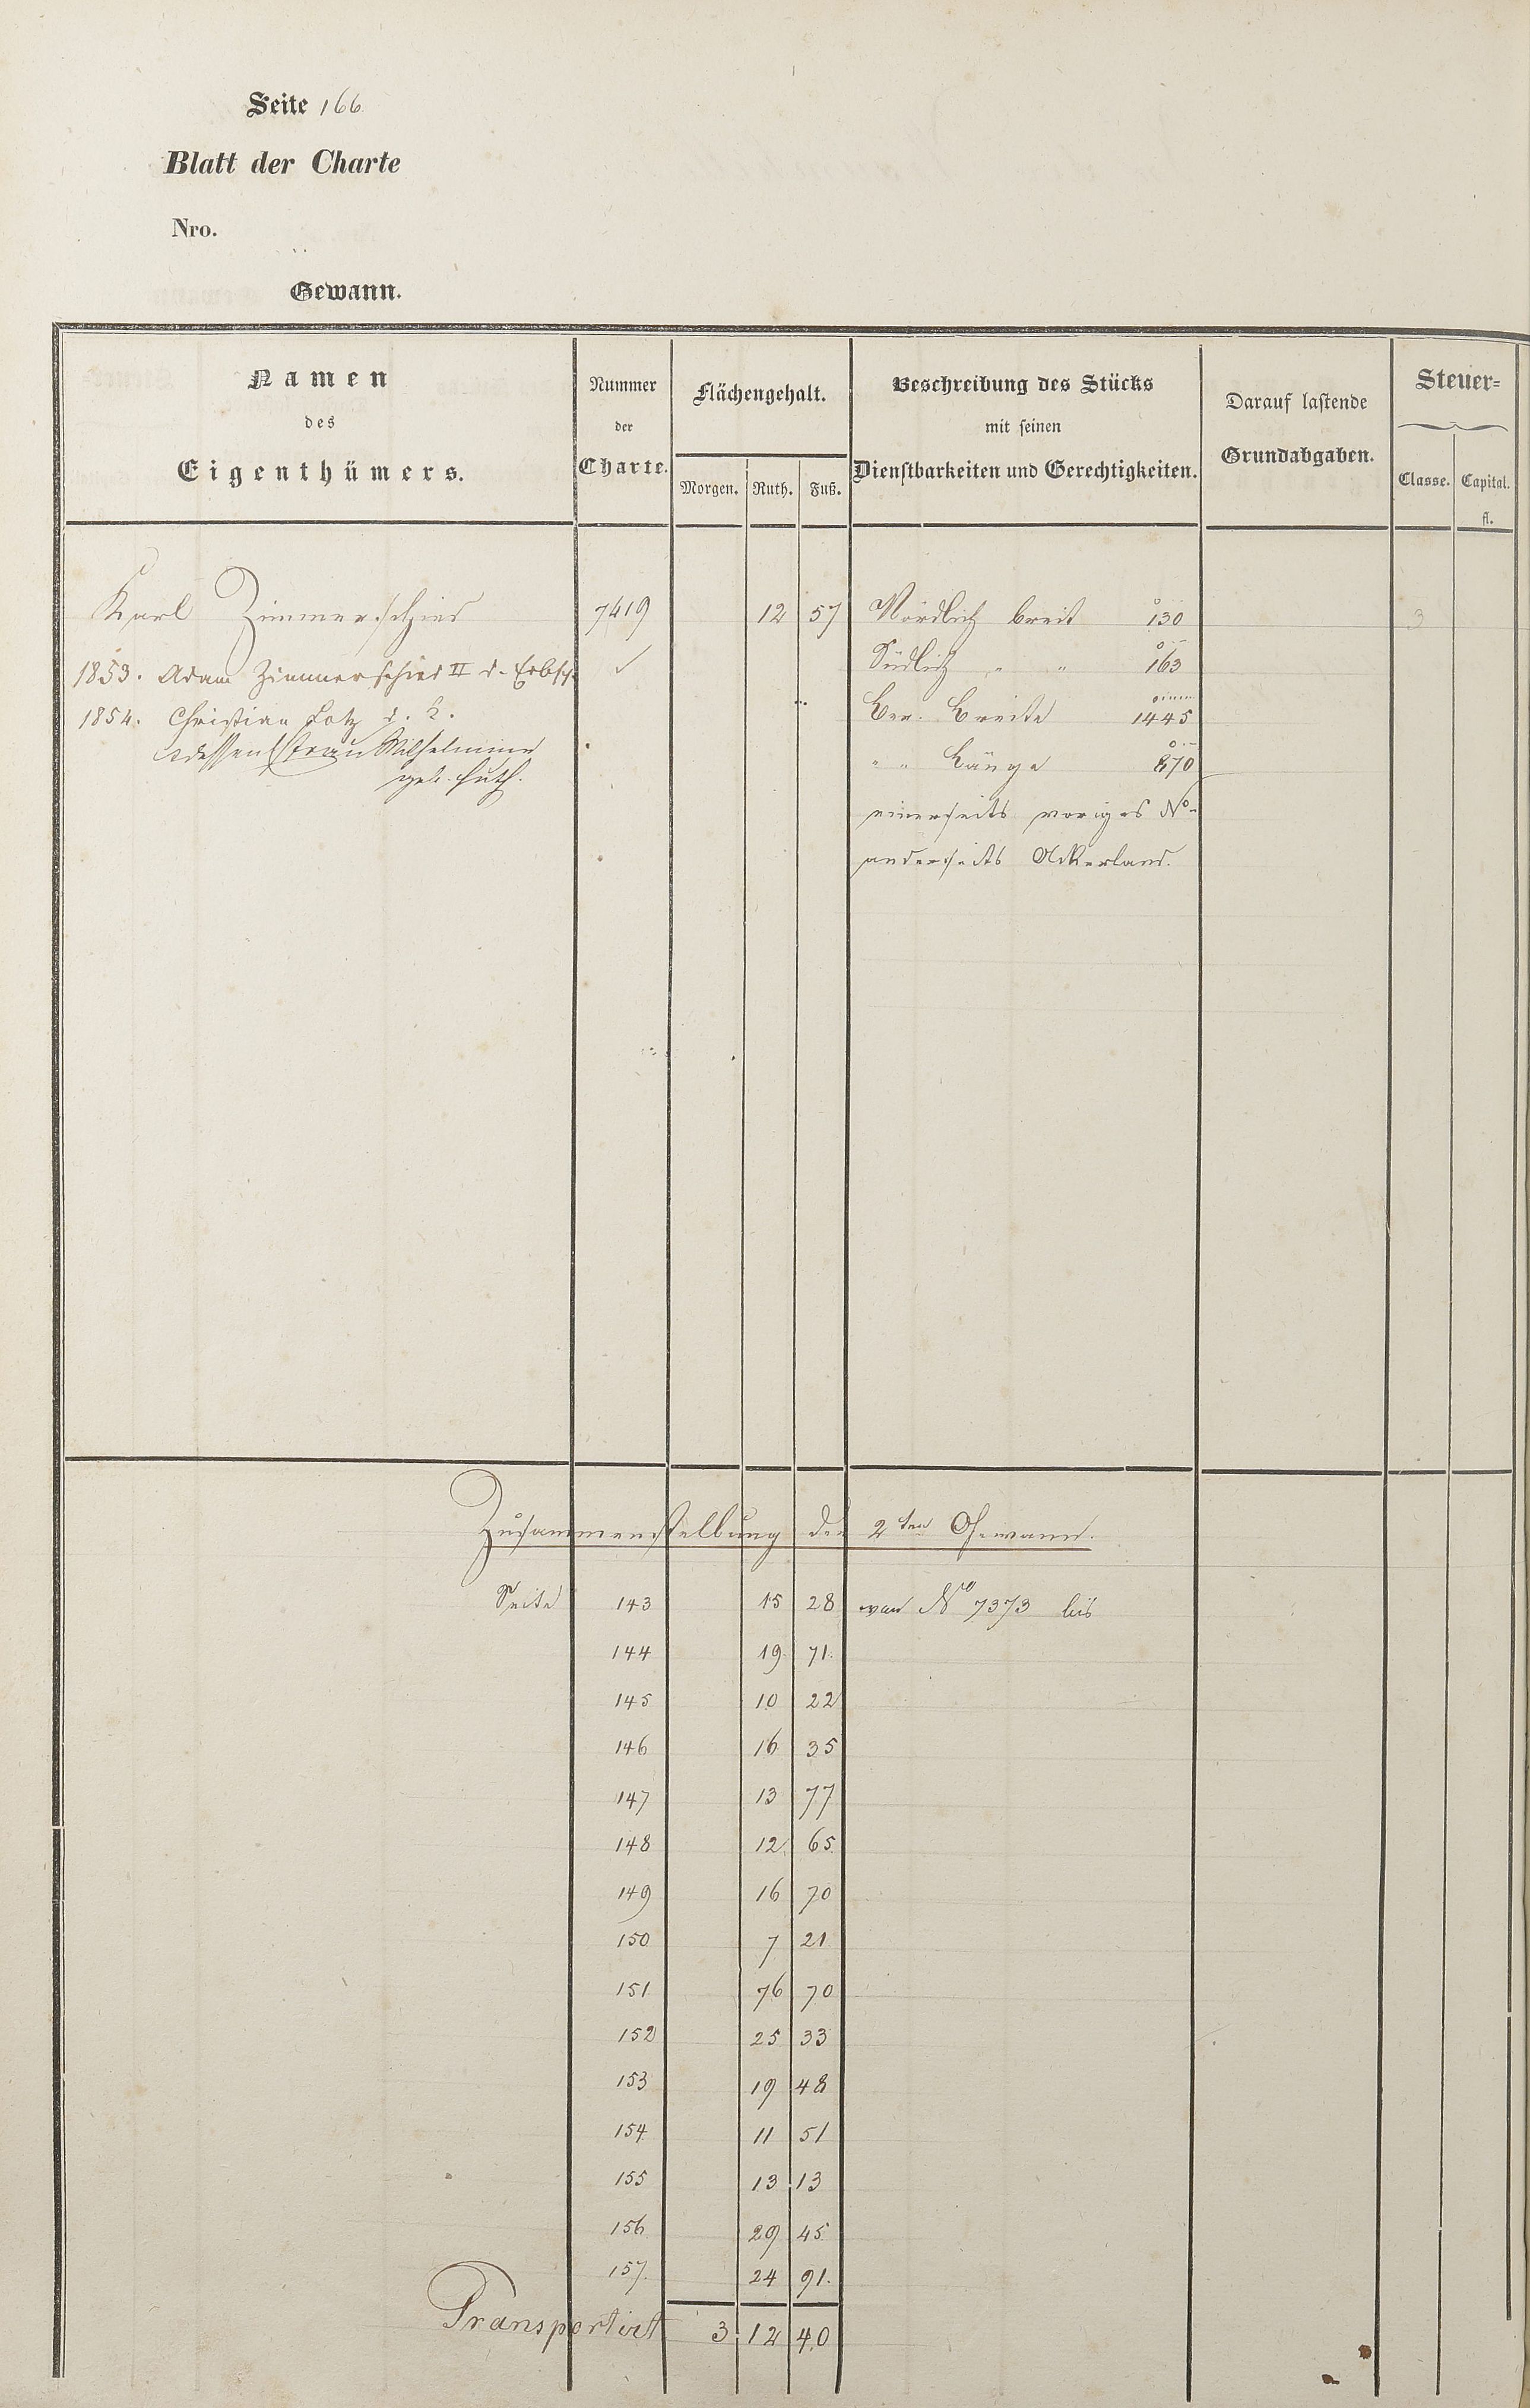 Seite 166
Blatt der Charte
Nro.
Gewann.
Namen des Eigenthümers.
Nummer der Charte.
Flächengehalt.
Morgen. Ruth. Fuß.
Beschreibung des Stücks mit seinen Dienstbarkeiten und Gerechtigkeiten.
Darauf lastende Grundabgaben.
Steuer=
Classe. Capital.
fl.
Karl Zimmerschied 7419 12 57 Nördlich breit 130 3
1853. Adam Zimmerschied II d. Erbsch. ✓ Südlich " " 163
1854. Christian Lotz d. K. Ber. Breite 1445
u dessen Ehefrau Wilhelmine " " Länge 870
geb. Huth.
einerseits voriges No
anderseits Ackerland.
Zusammenstellung der 2ten Gewann.
Seite 143 15 28 von No 7373 bis
144 19 71
145 10 22
146 16 35
147 13 77
148 12 65
149 16 70
150 7 21
151 76 70
152 25 33
153 19 48
154 11 51
155 13 13
156 29 45
157 24 91
Transportirt 3 12 40